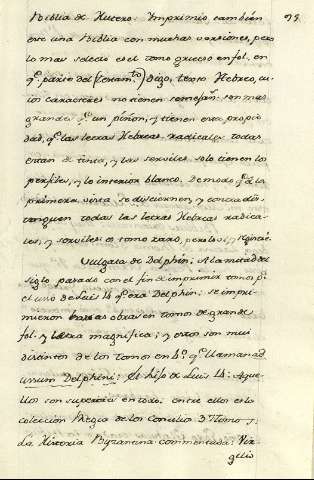 99.
Biblia de Hutero: Imprimio tambien
este una Biblia con muchas versiones, pero
lo mas selecto es el tomo grueso en fol. en
q.e pario del (testam.to) digo, texto Hebreo, cu-
ios caracteres no tienen semejan. son mas
grandes q.e un piñon, y tienen esta propie
dad, q.e las letras Hebreas radicales todas
estan de tinta, y las serviles solo tienen los
perfiles, y lo interior blanco. De modo q.e a la
primera vista se disciernen, y
todas las letras Hebreas radica-
les, y serviles es tomo raro, pero lo vi, y
Vulgata de Delphin: A la mitad del
siglo pasado con el fin de imprimir tomos p.a
el uso de Luis 14 q.e era Delphin: se impri-
mieron barias obras en tomos de grande
fol. y letra magnifica; y estos son mui
distintos de los tomos en 4.o q.e llaman ad
usum Delphini: el hijo de Luis 14: Aque-
llos son superiores en todo: entre ellos esta
coleccion Regia de los Concilios 37 tomos:
La Historia Byzantina commentada: Vir-
gilio